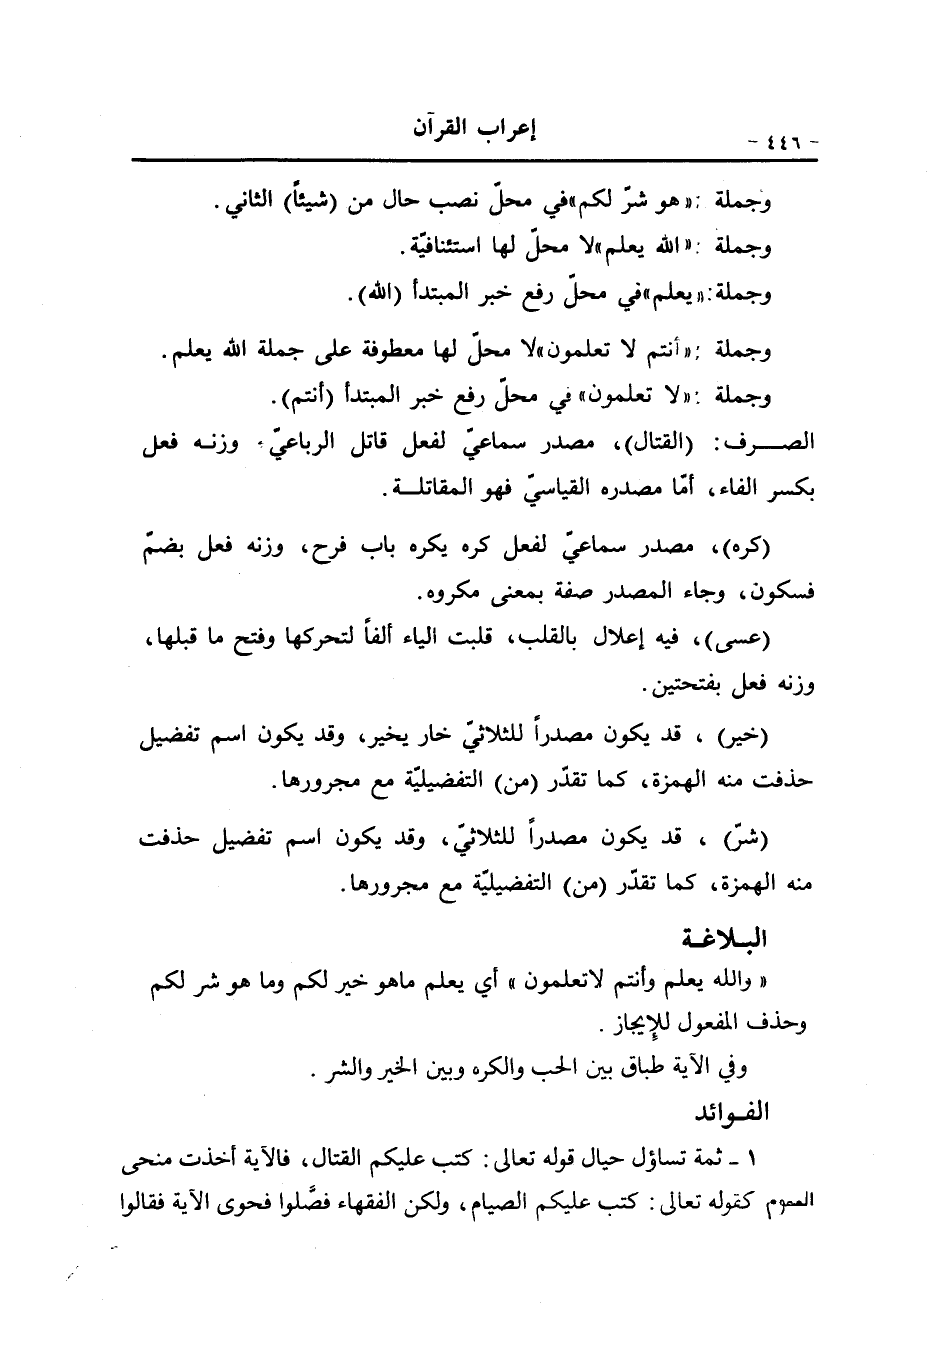 إعراب القرآن
- ٤٤٦ -
وجملة : «هو شرّ لكم» في محلّ نصب حال من (شيئاً) الثاني .
وجملة : «الله يعلم» لا محلّ لها استئنافيّة .
وجملة: «يعلم» في محلّ رفع خبر المبتدأ (الله) .
وجملة : «أنتم لا تعلمون» لا محلّ لها معطوفة على جملة الله يعلم .
وجملة : «لا تعلمون» في محلّ رفع خبر المبتدأ (أنتم) .
الصـرف: (القتال)، مصدر سماعيّ لفعل قاتل الرباعيّ، وزنه فعل
بكسر الفاء، أمّا مصدره القياسيّ فهو المقاتلـة .
(كره)، مصدر سماعيّ لفعل كره يكره باب فرح، وزنه فعل بضمّ
فسكون، وجاء المصدر صفة بمعنى مكروه .
(عسى)، فيه إعلال بالقلب، قلبت الياء ألفاً لتحركها وفتح ما قبلها،
وزنه فعل بفتحتين .
(خير) ، قد يكون مصدراً للثلاثيّ خار يخير، وقد يكون اسم تفضيل
حذفت منه الهمزة، كما تقدّر (من) التفضيليّة مع مجرورها .
(شرّ) ، قد يكون مصدراً للثلاثيّ، وقد يكون اسم تفضيل حذفت
منه الهمزة، كما تقدّر (من) التفضيليّة مع مجرورها .
البـلاغـة
« والله يعلم وأنتم لاتعلمون » أي يعلم ماهو خير لكم وما هو شر لكم
وحذف المفعول للإيجاز .
وفي الآية طباق بين الحب والكره وبين الخير والشر .
الفـوائد
١ ـ ثمة تساؤل حيال قوله تعالى: كتب عليكم القتال، فالآية أخذت منحى
العموم كقوله تعالى: كتب عليكم الصيام، ولكن الفقهاء فصَّلوا فحوى الآية فقالوا